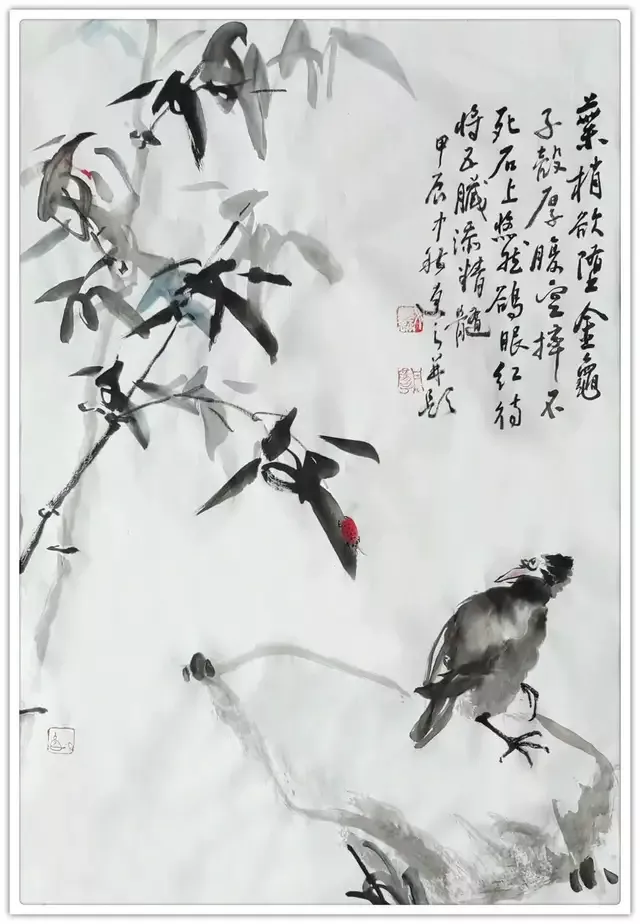 葉梢欲墮金龜
子殼厚腹空摔不
死石上悠然鵒眼紅待
將五臟添精髓
甲辰中秋之并題